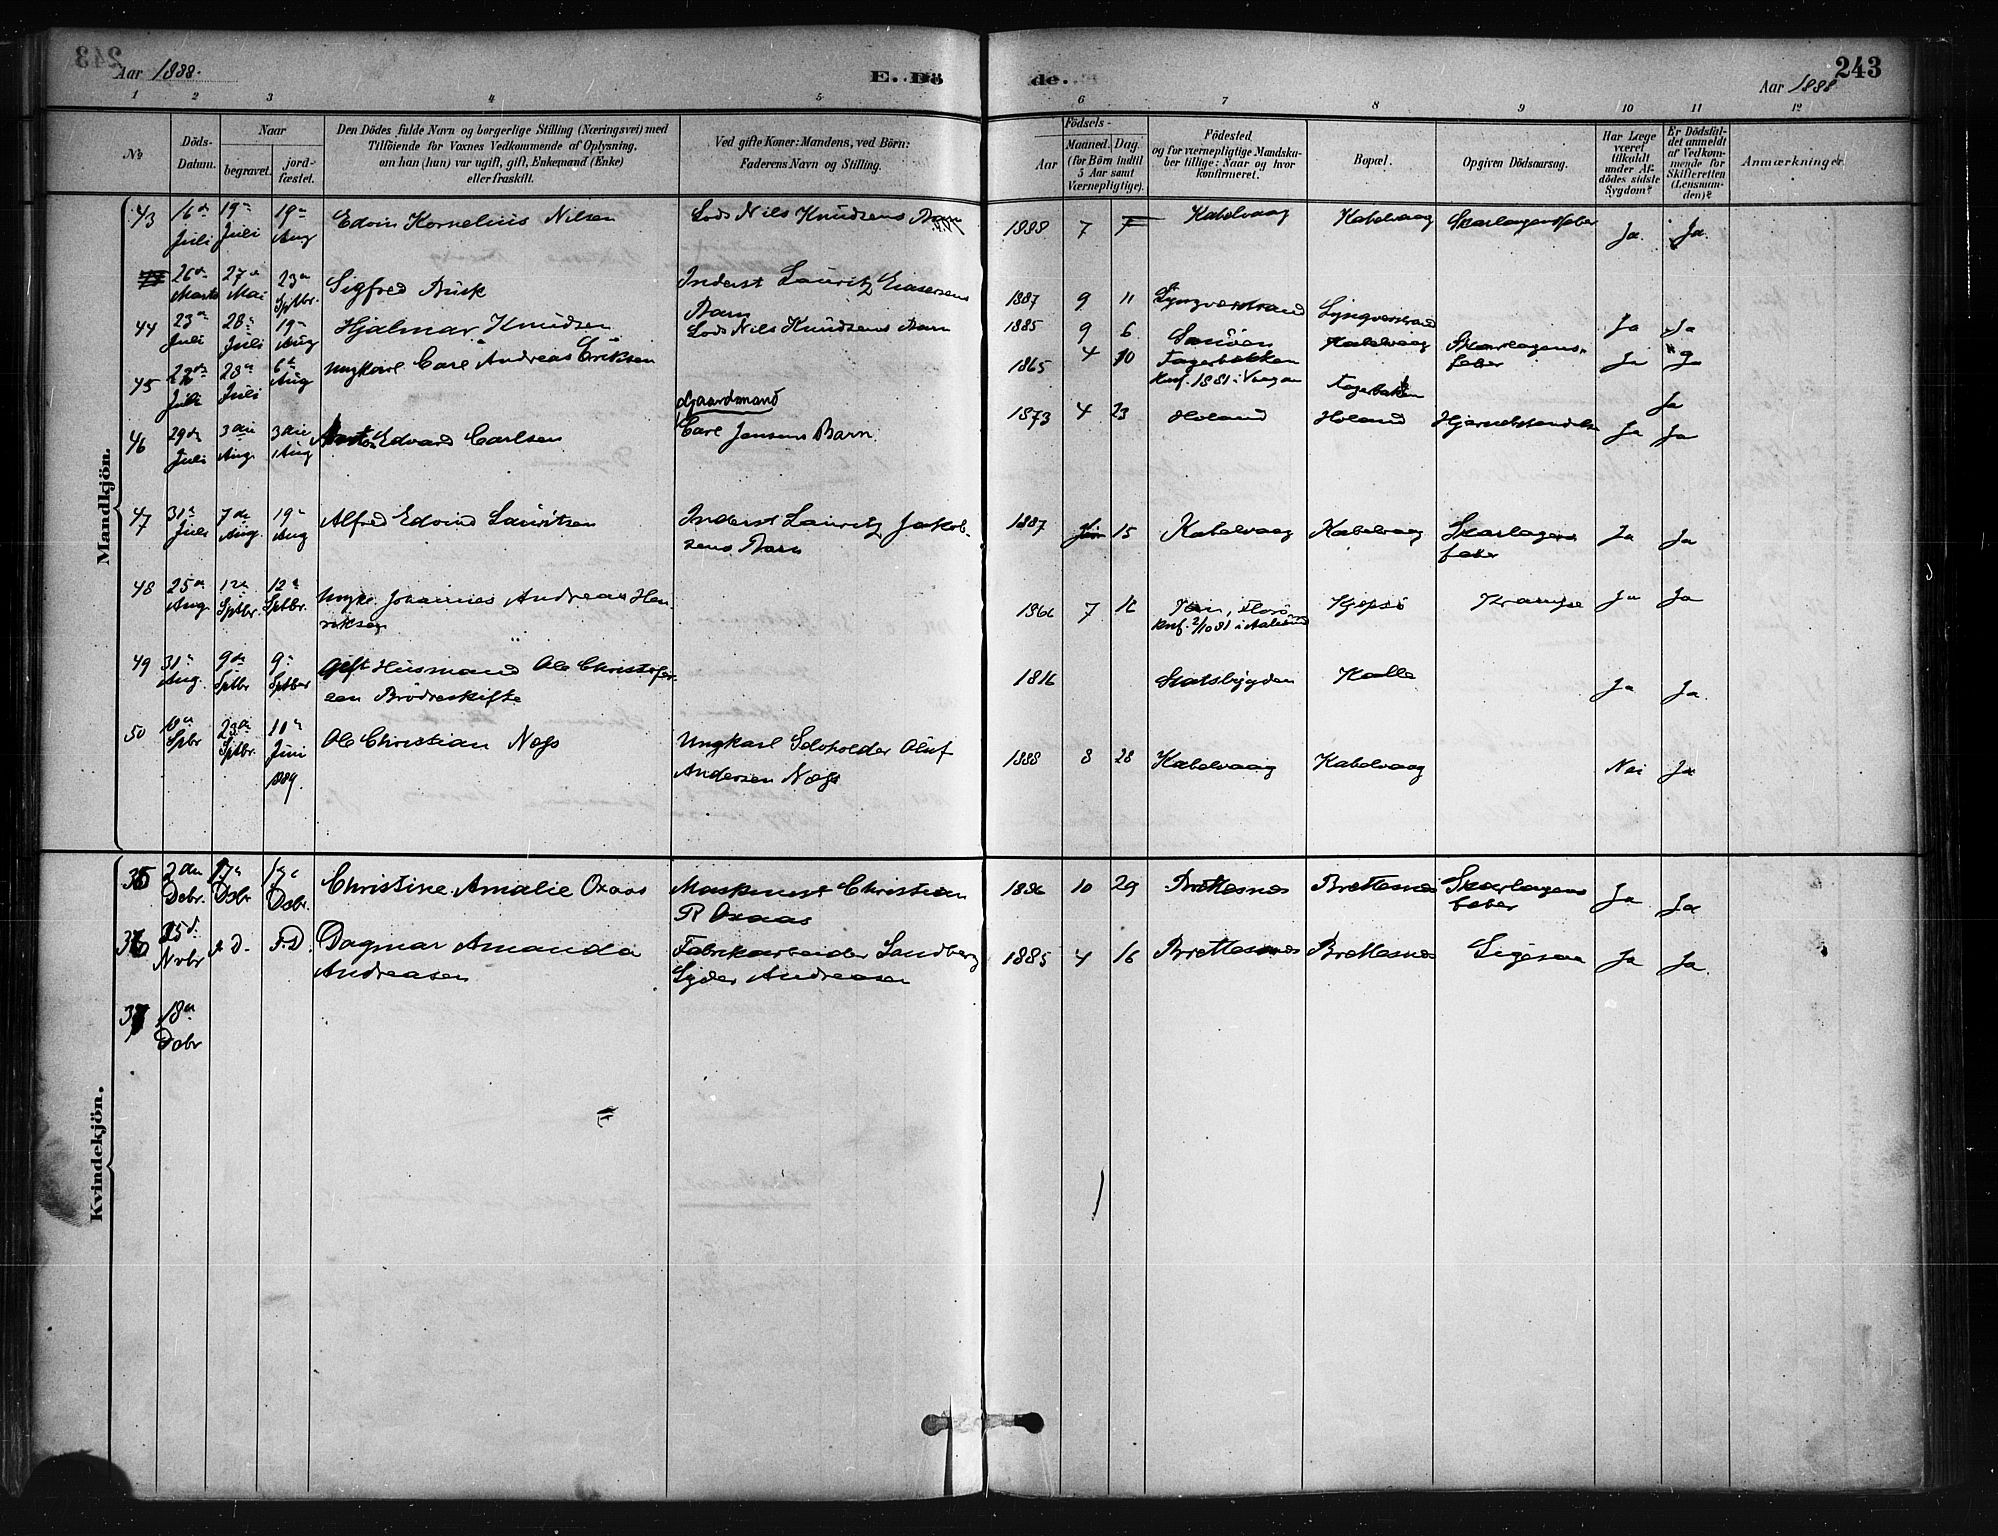 243
Aar 1888.
E. Dö
de.
Aar 1888
1 2 3 4 5 6 7 8 9 10 11 12
No
Döds-
Datum.
Naar
begravet.
jord-
fæstet.
Den Dödes fulde Navn og borgerlige Stilling (Næringsvei) med
Tilföiende for Voxnes Vedkommende af Oplysning,
om han (hun) var ugift, gift, Enkemand (Enke)
eller fraskilt.
Ved gifte Koner: Mandens, ved Börn:
Faderens Navn og Stilling.
Födsels-
Aar
Maaned.
Dag.
(for Börn indtil
5 Aar samt
Værnepligtige).
Födested
og for værnepligtige Mandska-
ber tillige: Naar og hvor
konfirmeret.
Bopæl.
Opgiven Dödsaarsag.
Har Læge
været
tilkaldt
under Af-
dödes sidste
Sygdom?
Er Dödsfal-
det anmeldt
af Vedkom-
mende for
Skifteretten
(Lensman-
den)?
Anmærkninger.
Mandkjön.
43 16de Juli 19de Juli 19de Aug Edvin Kornelius Nilsen Lods Nils Knudsens Barn 1888 7 7 Kabelvaag Kabelvaag Skarlagensfeber Ja. Ja.
26de Marts 27de Mai 23de Sptbr. Sigfred Busk Inderst Lauritz Einersens
Barn 1887 9 11 Lyngværstrand Lyngverstrand Ja Ja
44 23de Juli 28de Juli 19de Aug Hjalmar Knudsen Lods Nils Knudsens Barn 1885 9 6 Kabelvaag Skarlagens-
feber Ja
45 22de Juli 28de Juli 6te Aug Ungkarl Carl Andreas Eriksen 1865 4 10 Fagerbakken
Knf. 1881 i Vaagan Fagerbakken Ja
46 29de Juli 3die Aug. 3die Aug Anton Edvard Carlsen Gaardmand
Carl Jensens Barn. 1873 4 23 Holand Holand Ja Ja
47 31te Juli 7de Aug. 19de Aug Alfred Edvind Lauritsen Inderst Lauritz Jakob-
sens Barn 1887 15 Kabelvaag Kabelvaag Skarlagens
feber Ja Ja
48 25de Aug. 12te Sptbr. 12te Sptbr. Ungk. Johannes Andreas Hen-
riksen 1866 7 Florö
Knf. 2/10 81 i Aalesund Hopsö Krampe Ja Ja
49 31te Aug. 9de Sptbr 9de Sptber Gift Husmand Ole Christofer-
sen Brödreskifte 1816 Statsbygden Kalle Ja Ja.
50 Sptbr 23de Sptbr. 10de Juni 1889. Ole Christian Næss Ungkarl Selvholder Oluf
Andersen Næss 1888 8 28 Kabelvaag Kabelvaag Nei Ja
Kvindekjön.
35 2den Dcbr. 17de Dcbr 17de Dcbr. Christine Amalie Oxaas Maskinist Christian
R Oxaas 1886 10 29 Brettesnes Brettesnes Skarlagens
feber Ja Ja
36 25de Nvbr s. D. s. D. Dagmar Amanda
Andreasen Fabrikarbeider Sandberg
Lyder Andreasen 1885 4 16 Brettesnes Brettesnes Ligesaa Ja Ja.
37 18de Dcbr